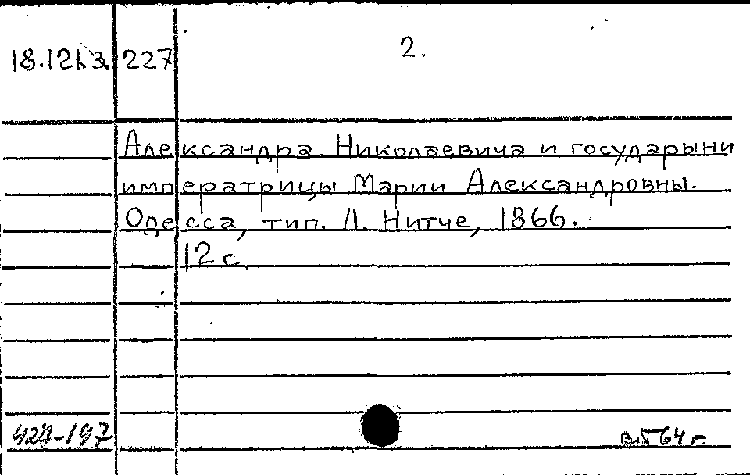 18.121.3. 227 2.
Александра Николаевича и государыни
императрицы Марии Александровны.
Одесса, тип. Л. Нитче, 1866.
12 с.
424-197